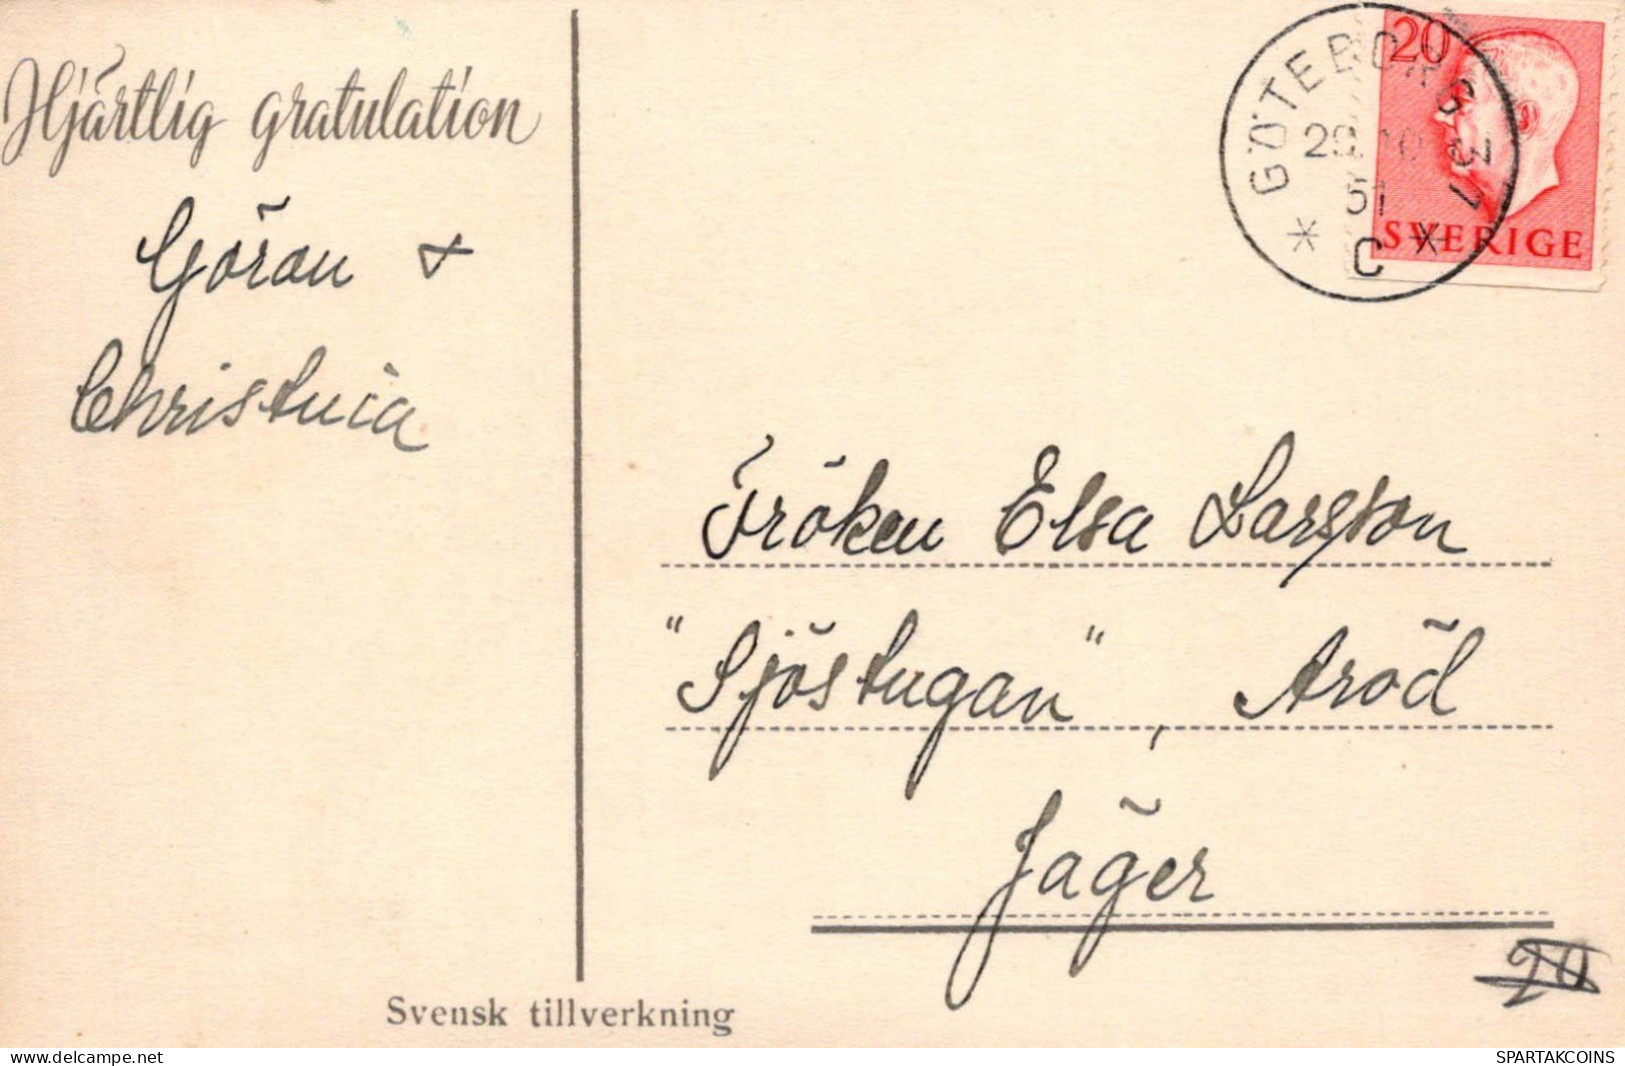 Hjärtlig gratulation
Göran &
Christina
20
GÖTEBORG 31
29. 10
51
C
SVERIGE
Fröken Elsa Larsson
"Sjöstugan", Aröd
Jäger
20
Svensk tillverkning
www.delcampe.net
SPARTAKCOINS